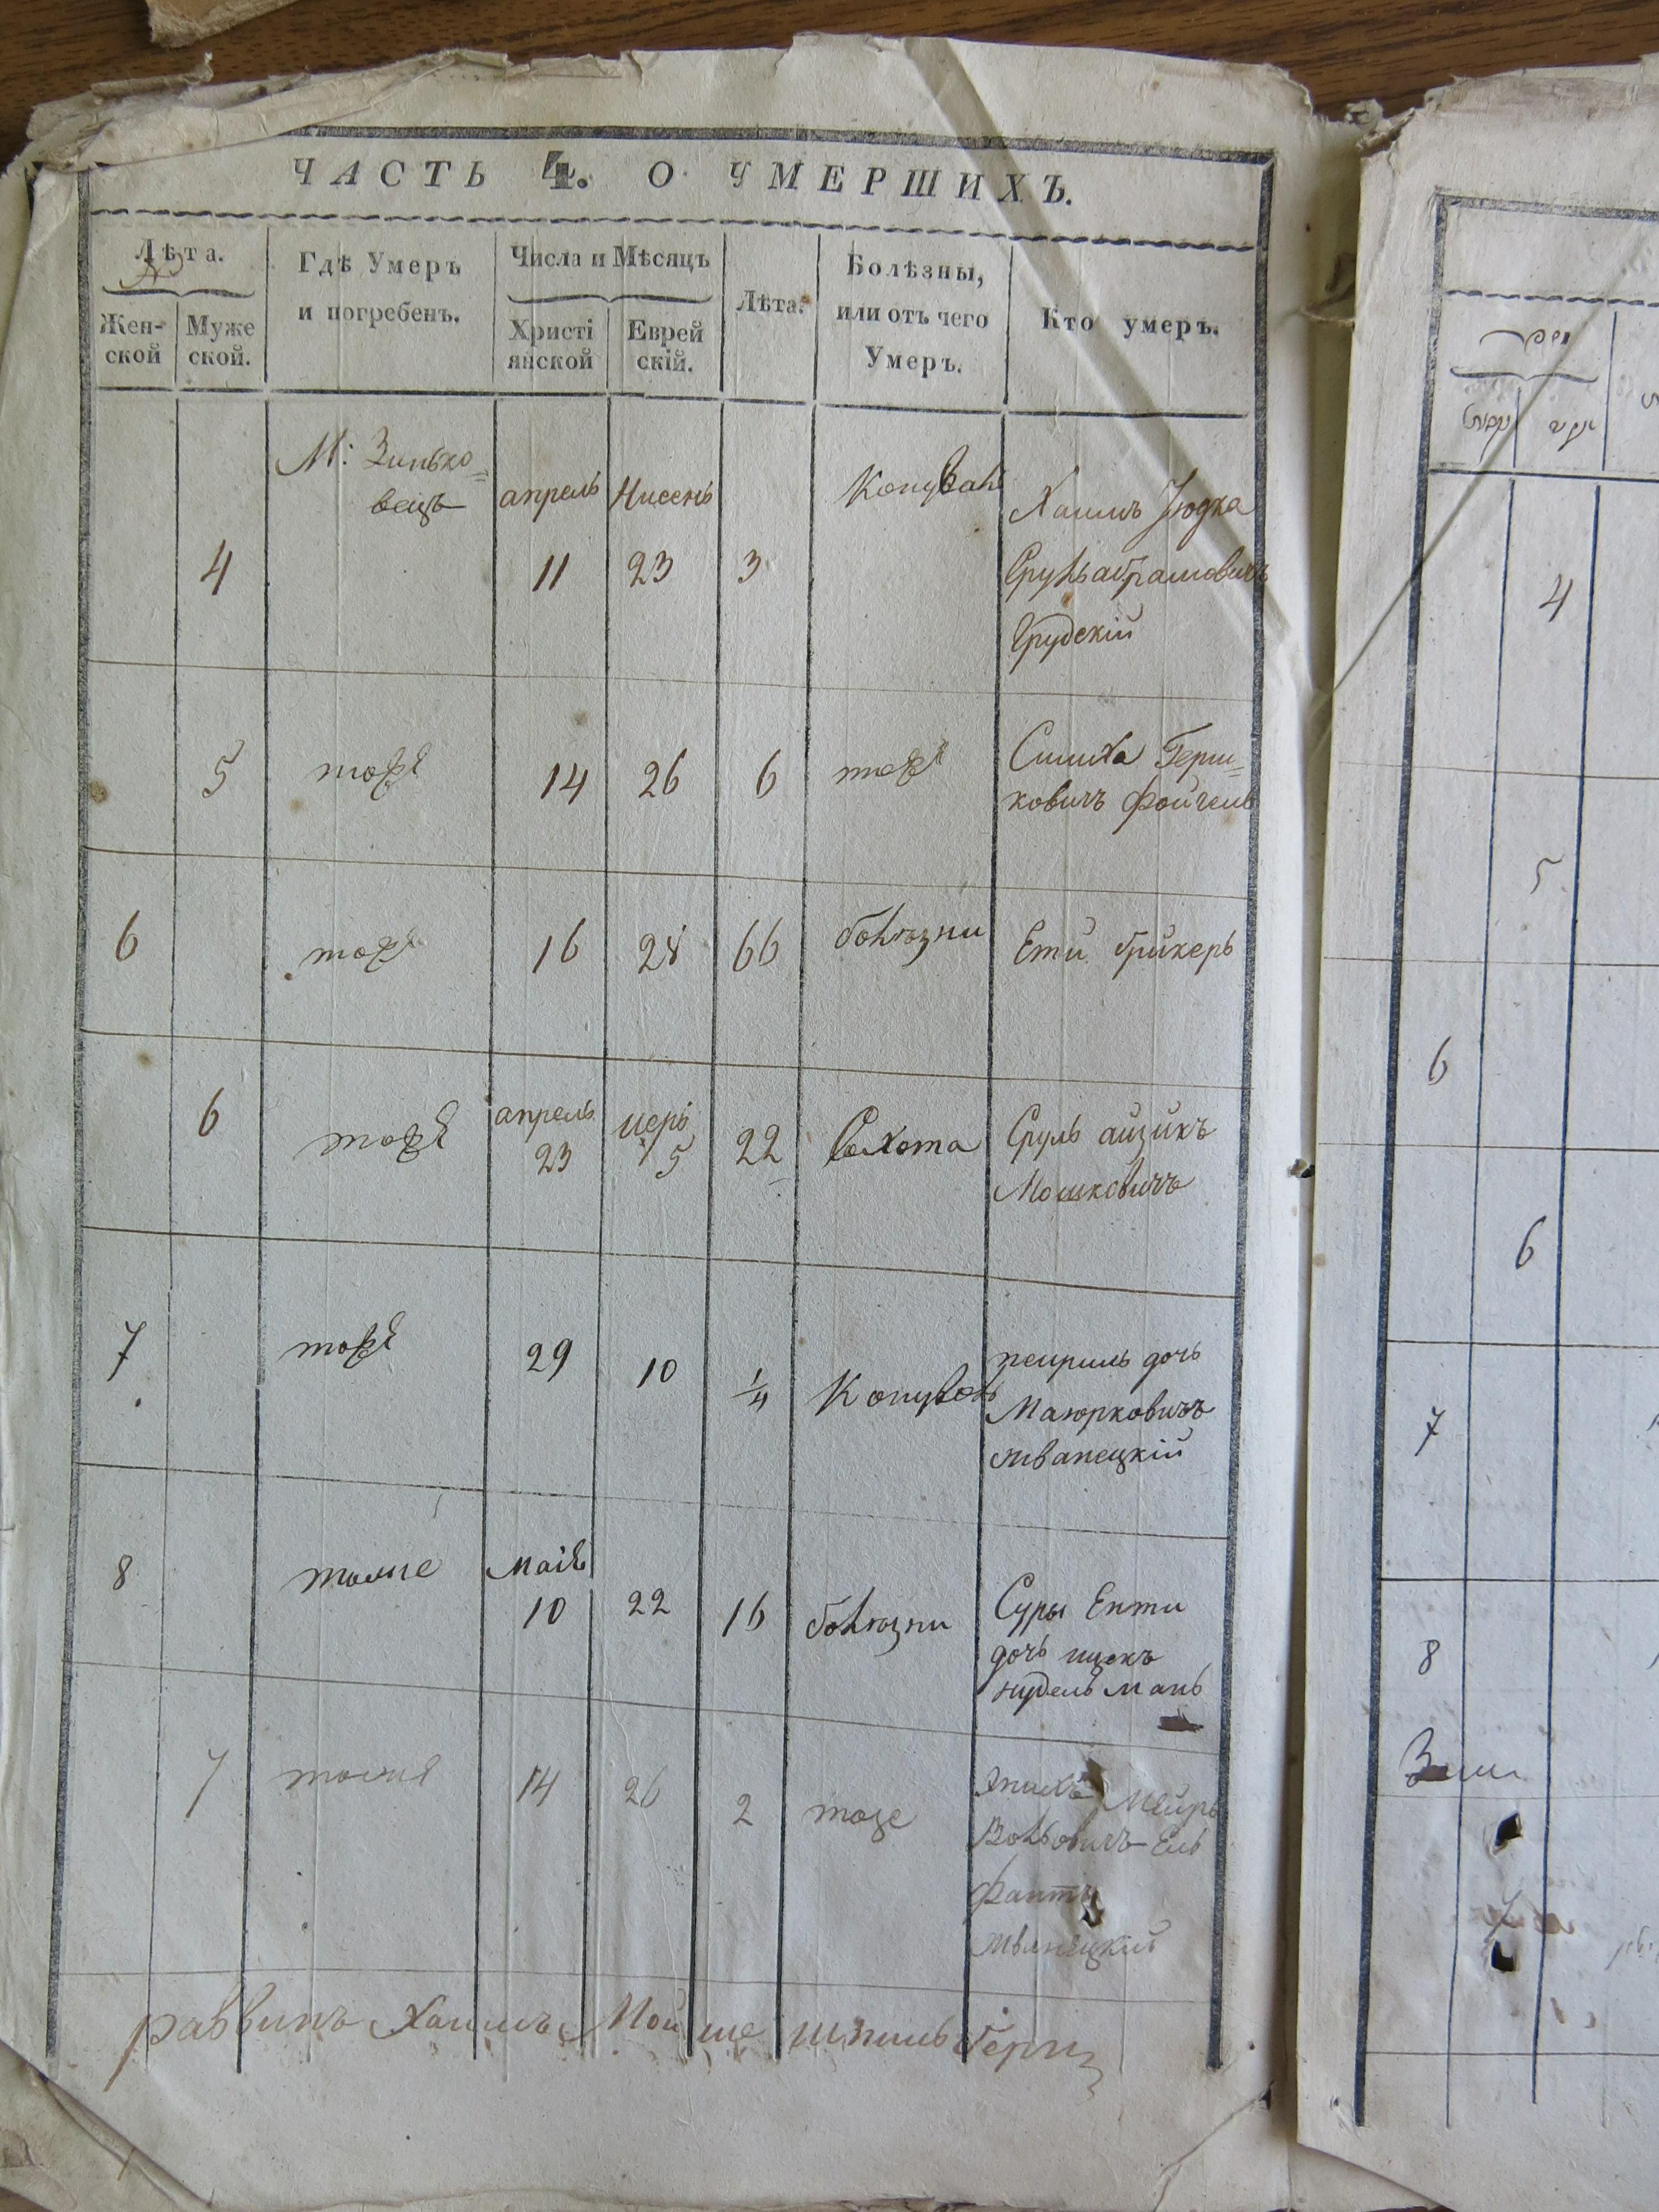 ЧАСТЬ 4. О УМЕРШИХЪ.
Лѣта.
Жен-
ской
Муже
ской.
Гдѣ Умеръ
и погребенъ.
Числа и Мѣсяцъ
Христі
янской
Еврей
скій.
Лѣта.
Болѣзны,
или отъ чего
Умеръ.
Кто умеръ.
4
М: Зинько=
вецъ
апрель
11
Нисень
23
3
Хаимъ Июдка
Срульабрамовичъ
Грудскій
5
тоже
14
26
6
тоже
Симха Герш=
ковичъ Фойгель
6
тоже
16
24
66
болѣзни
Ети брикеръ
6
тоже
апрель
23
иеръ
5
22
Сухота
Сруль айзикъ
Мошковичъ
7
тоже
29
10
1/4
дочь
Маюрковичъ
жванецкій
8
тоже
маія
10
22
16
болѣзни
Суры Енти
дочь ицекъ
нудельманъ
7
тоже
14
26
2
тоже
Мейръ
Вольовичъ Ель
Фантъ
жванецкій
раввинъ Хаимъ Мойше шпильберг
4
5
6
6
7
8
7